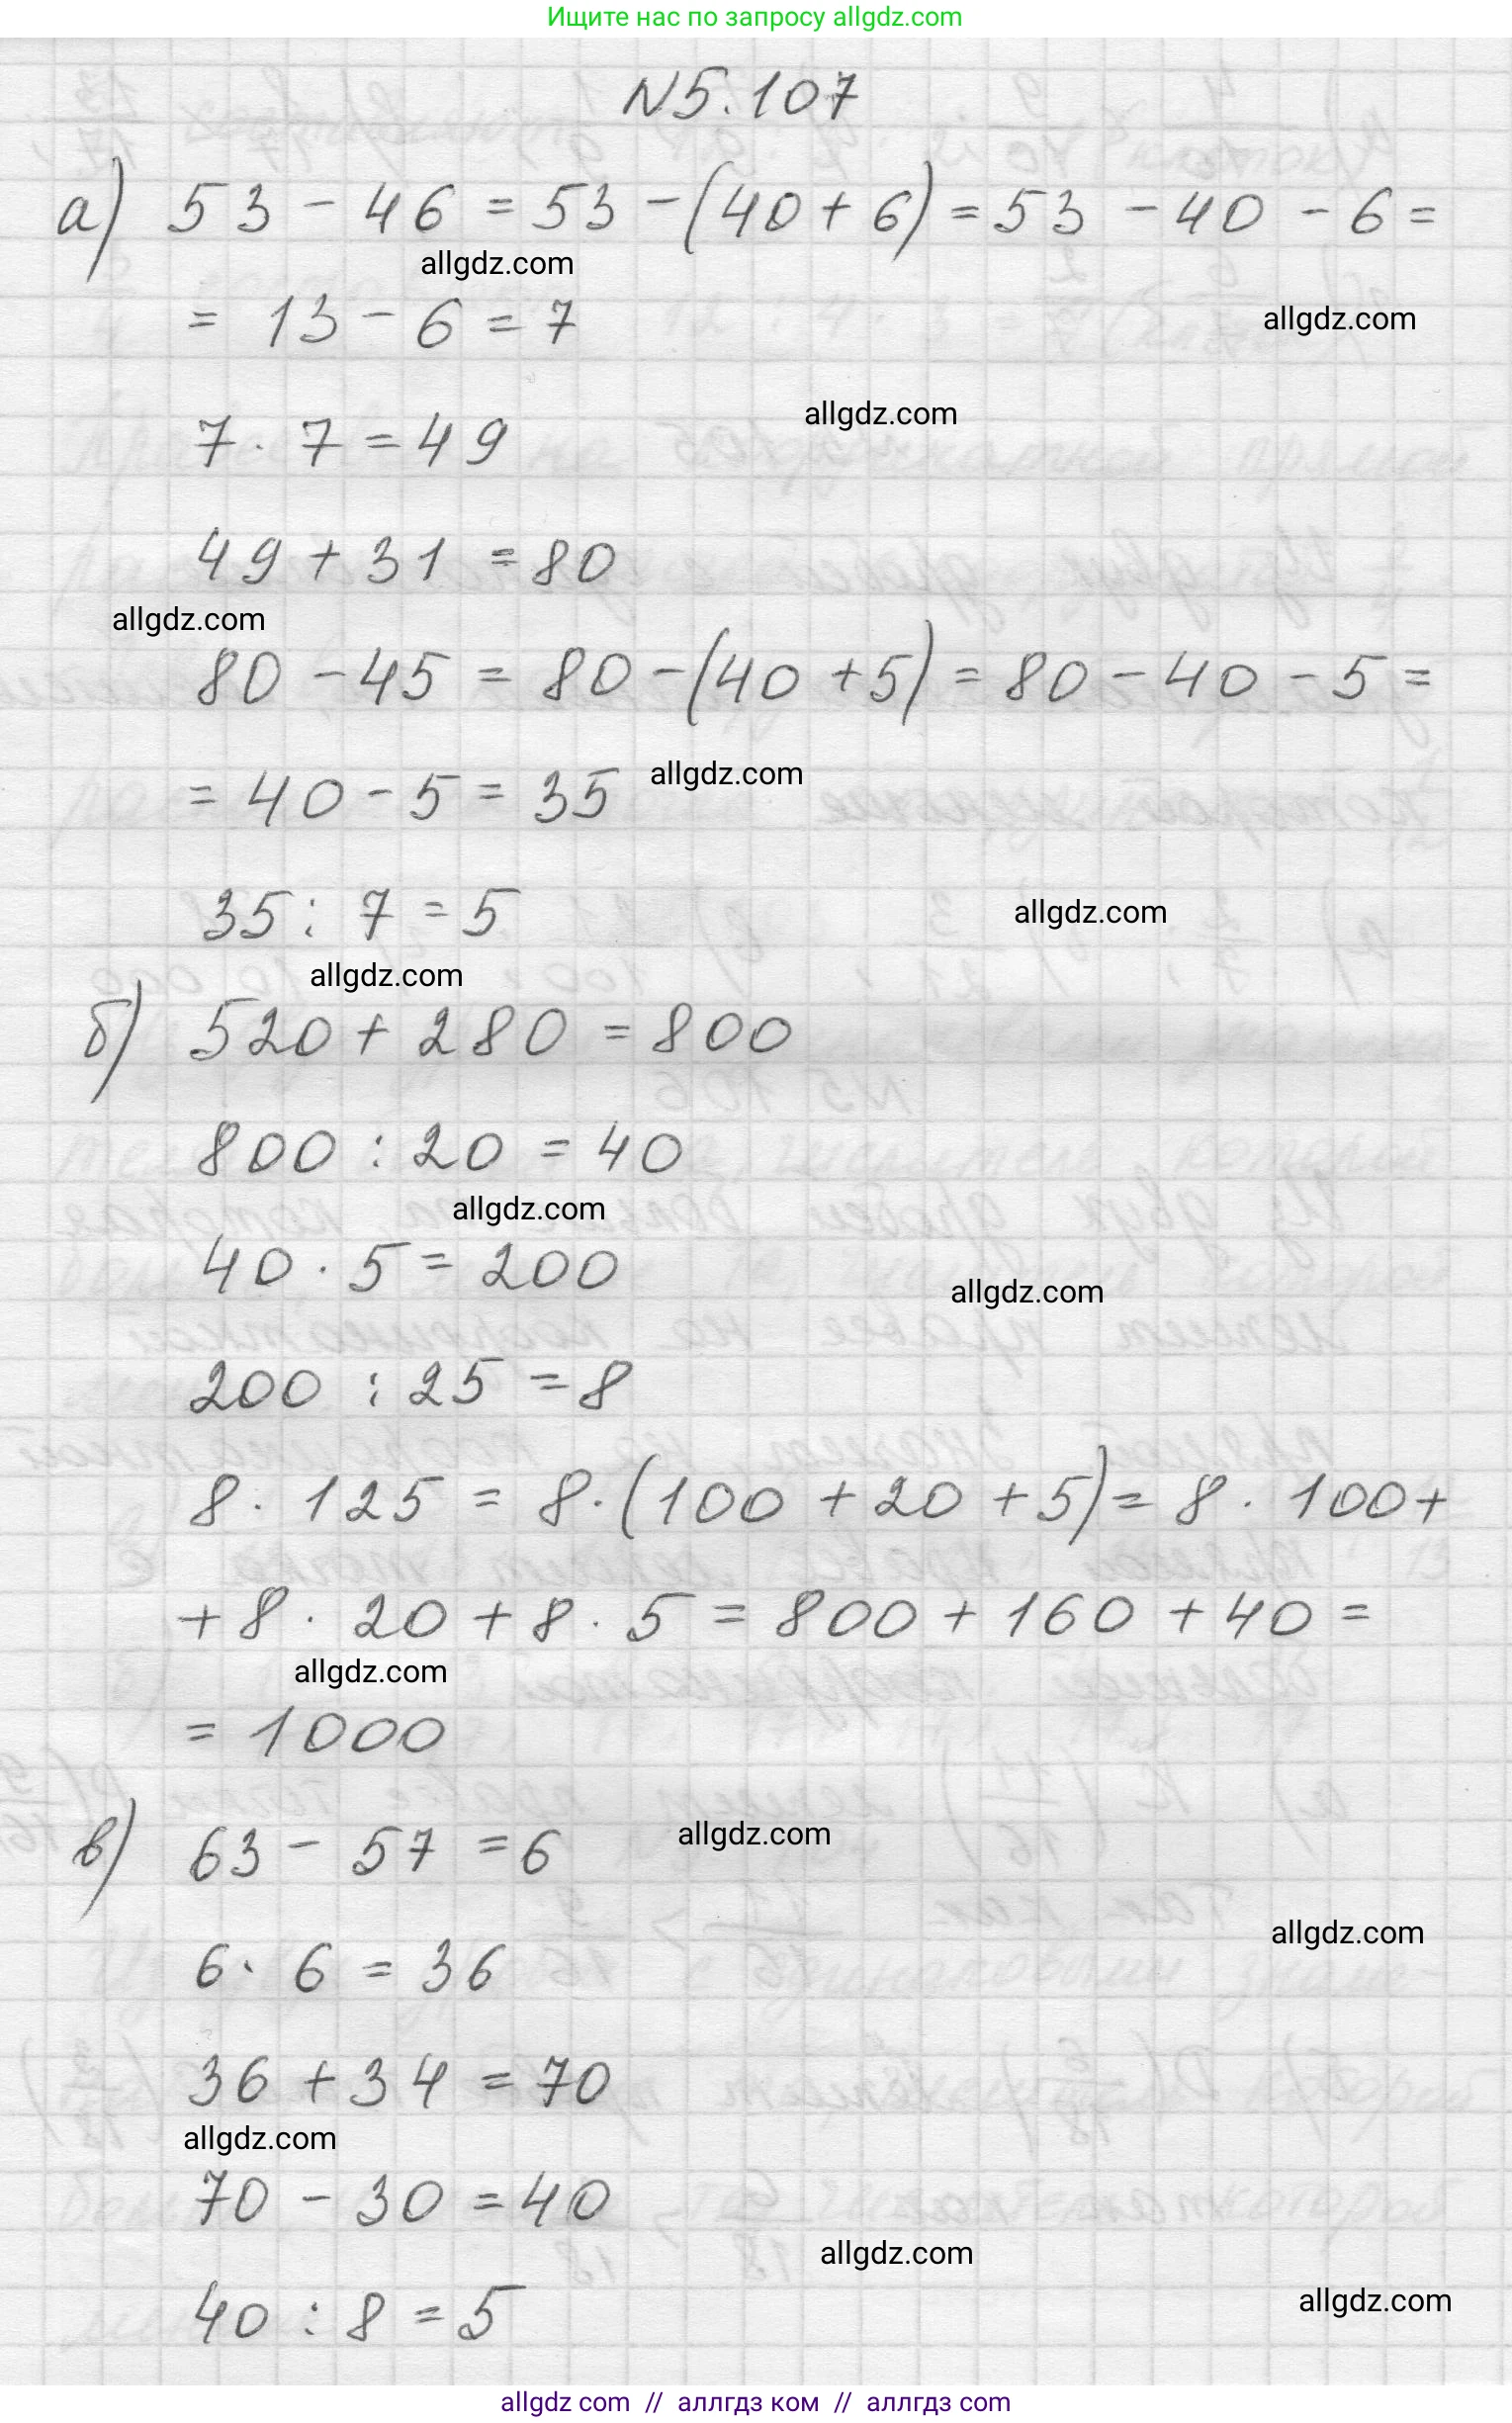 Ищите нас по запросу allgdz.com
N5.107
а) 53 - 46 = 53 - (40 + 6) = 53 - 40 - 6 =
allgdz.com
= 13 - 6 = 7
allgdz.com
allgdz.com
7 · 7 = 49
49 + 31 = 80
allgdz.com
80 - 45 = 80 - (40 + 5) = 80 - 40 - 5 =
allgdz.com
= 40 - 5 = 35
35 : 7 = 5
allgdz.com
allgdz.com
б) 520 + 280 = 800
800 : 20 = 40
allgdz.com
40 · 5 = 200
allgdz.com
200 : 25 = 8
8 · 125 = 8 · (100 + 20 + 5) = 8 · 100 +
+ 8 · 20 + 8 · 5 = 800 + 160 + 40 =
allgdz.com
= 1000
в) 63 - 57 = 6
allgdz.com
allgdz.com
6 · 6 = 36
36 + 34 = 70
allgdz.com
70 - 30 = 40
allgdz.com
allgdz.com
40 : 8 = 5
allgdz com // аллгдз ком // аллгдз com